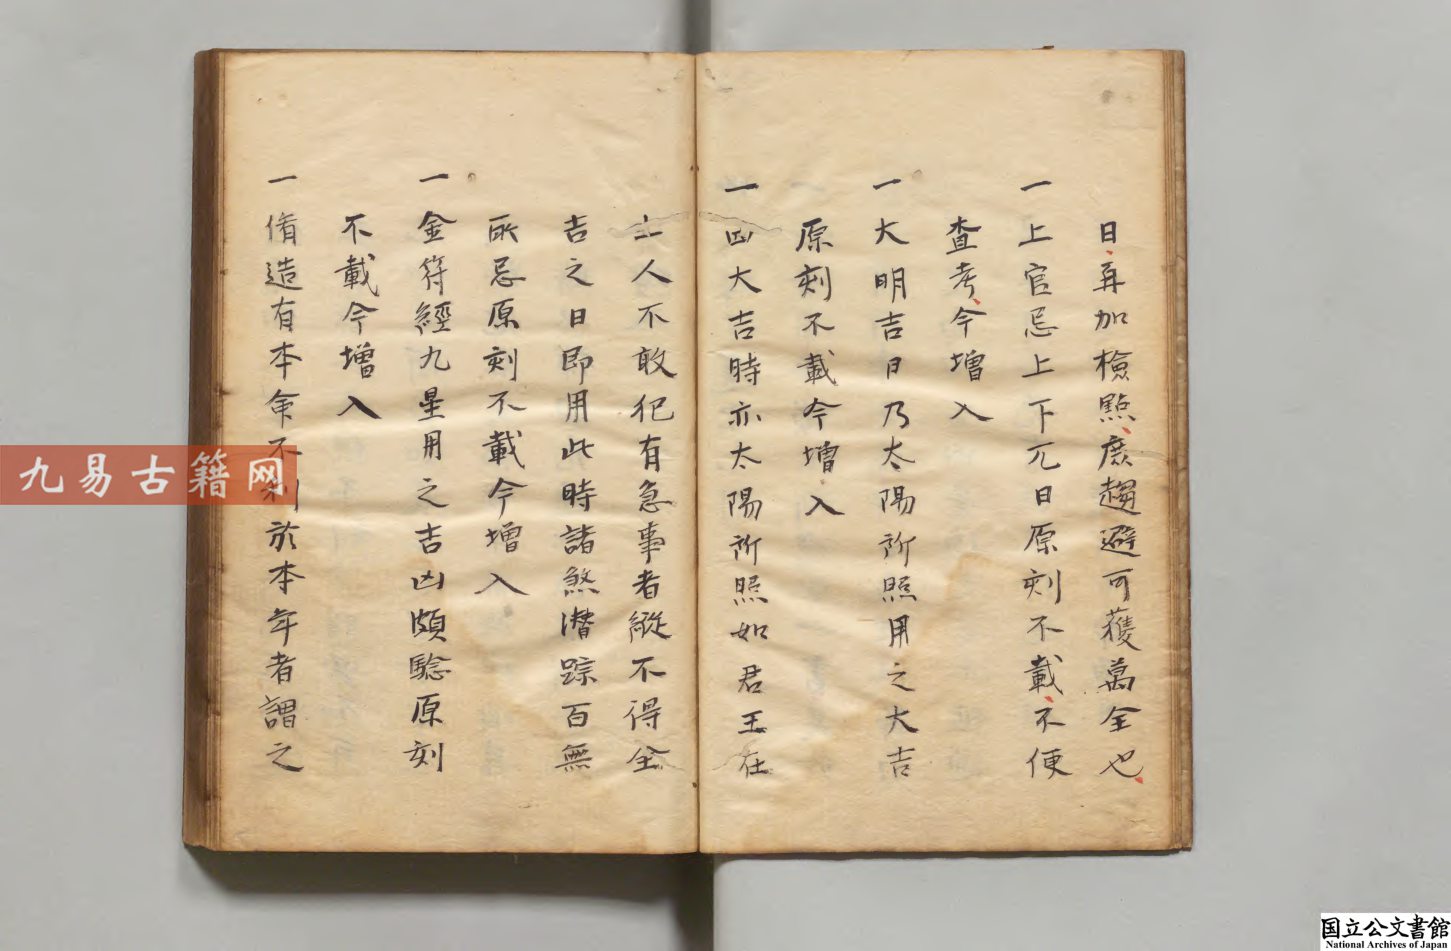 日再加檢照庶趨避可獲萬全也
一上官忌上下兀日原刻不載不便
查考今增入
一大明吉日乃太陽所照用之大吉
原刻不載今增入
一四大吉時亦太陽所照如君王在
上人不敢犯有急事者縱不得全
吉之日即用此時諸煞潛踪百無
所忌原刻不載今增入
一金符經九星用之吉凶頗驗原刻
不載今增入
一脩造有本命不利於本年者謂之
九易古籍网
国立公文書館
National Archives of Japan